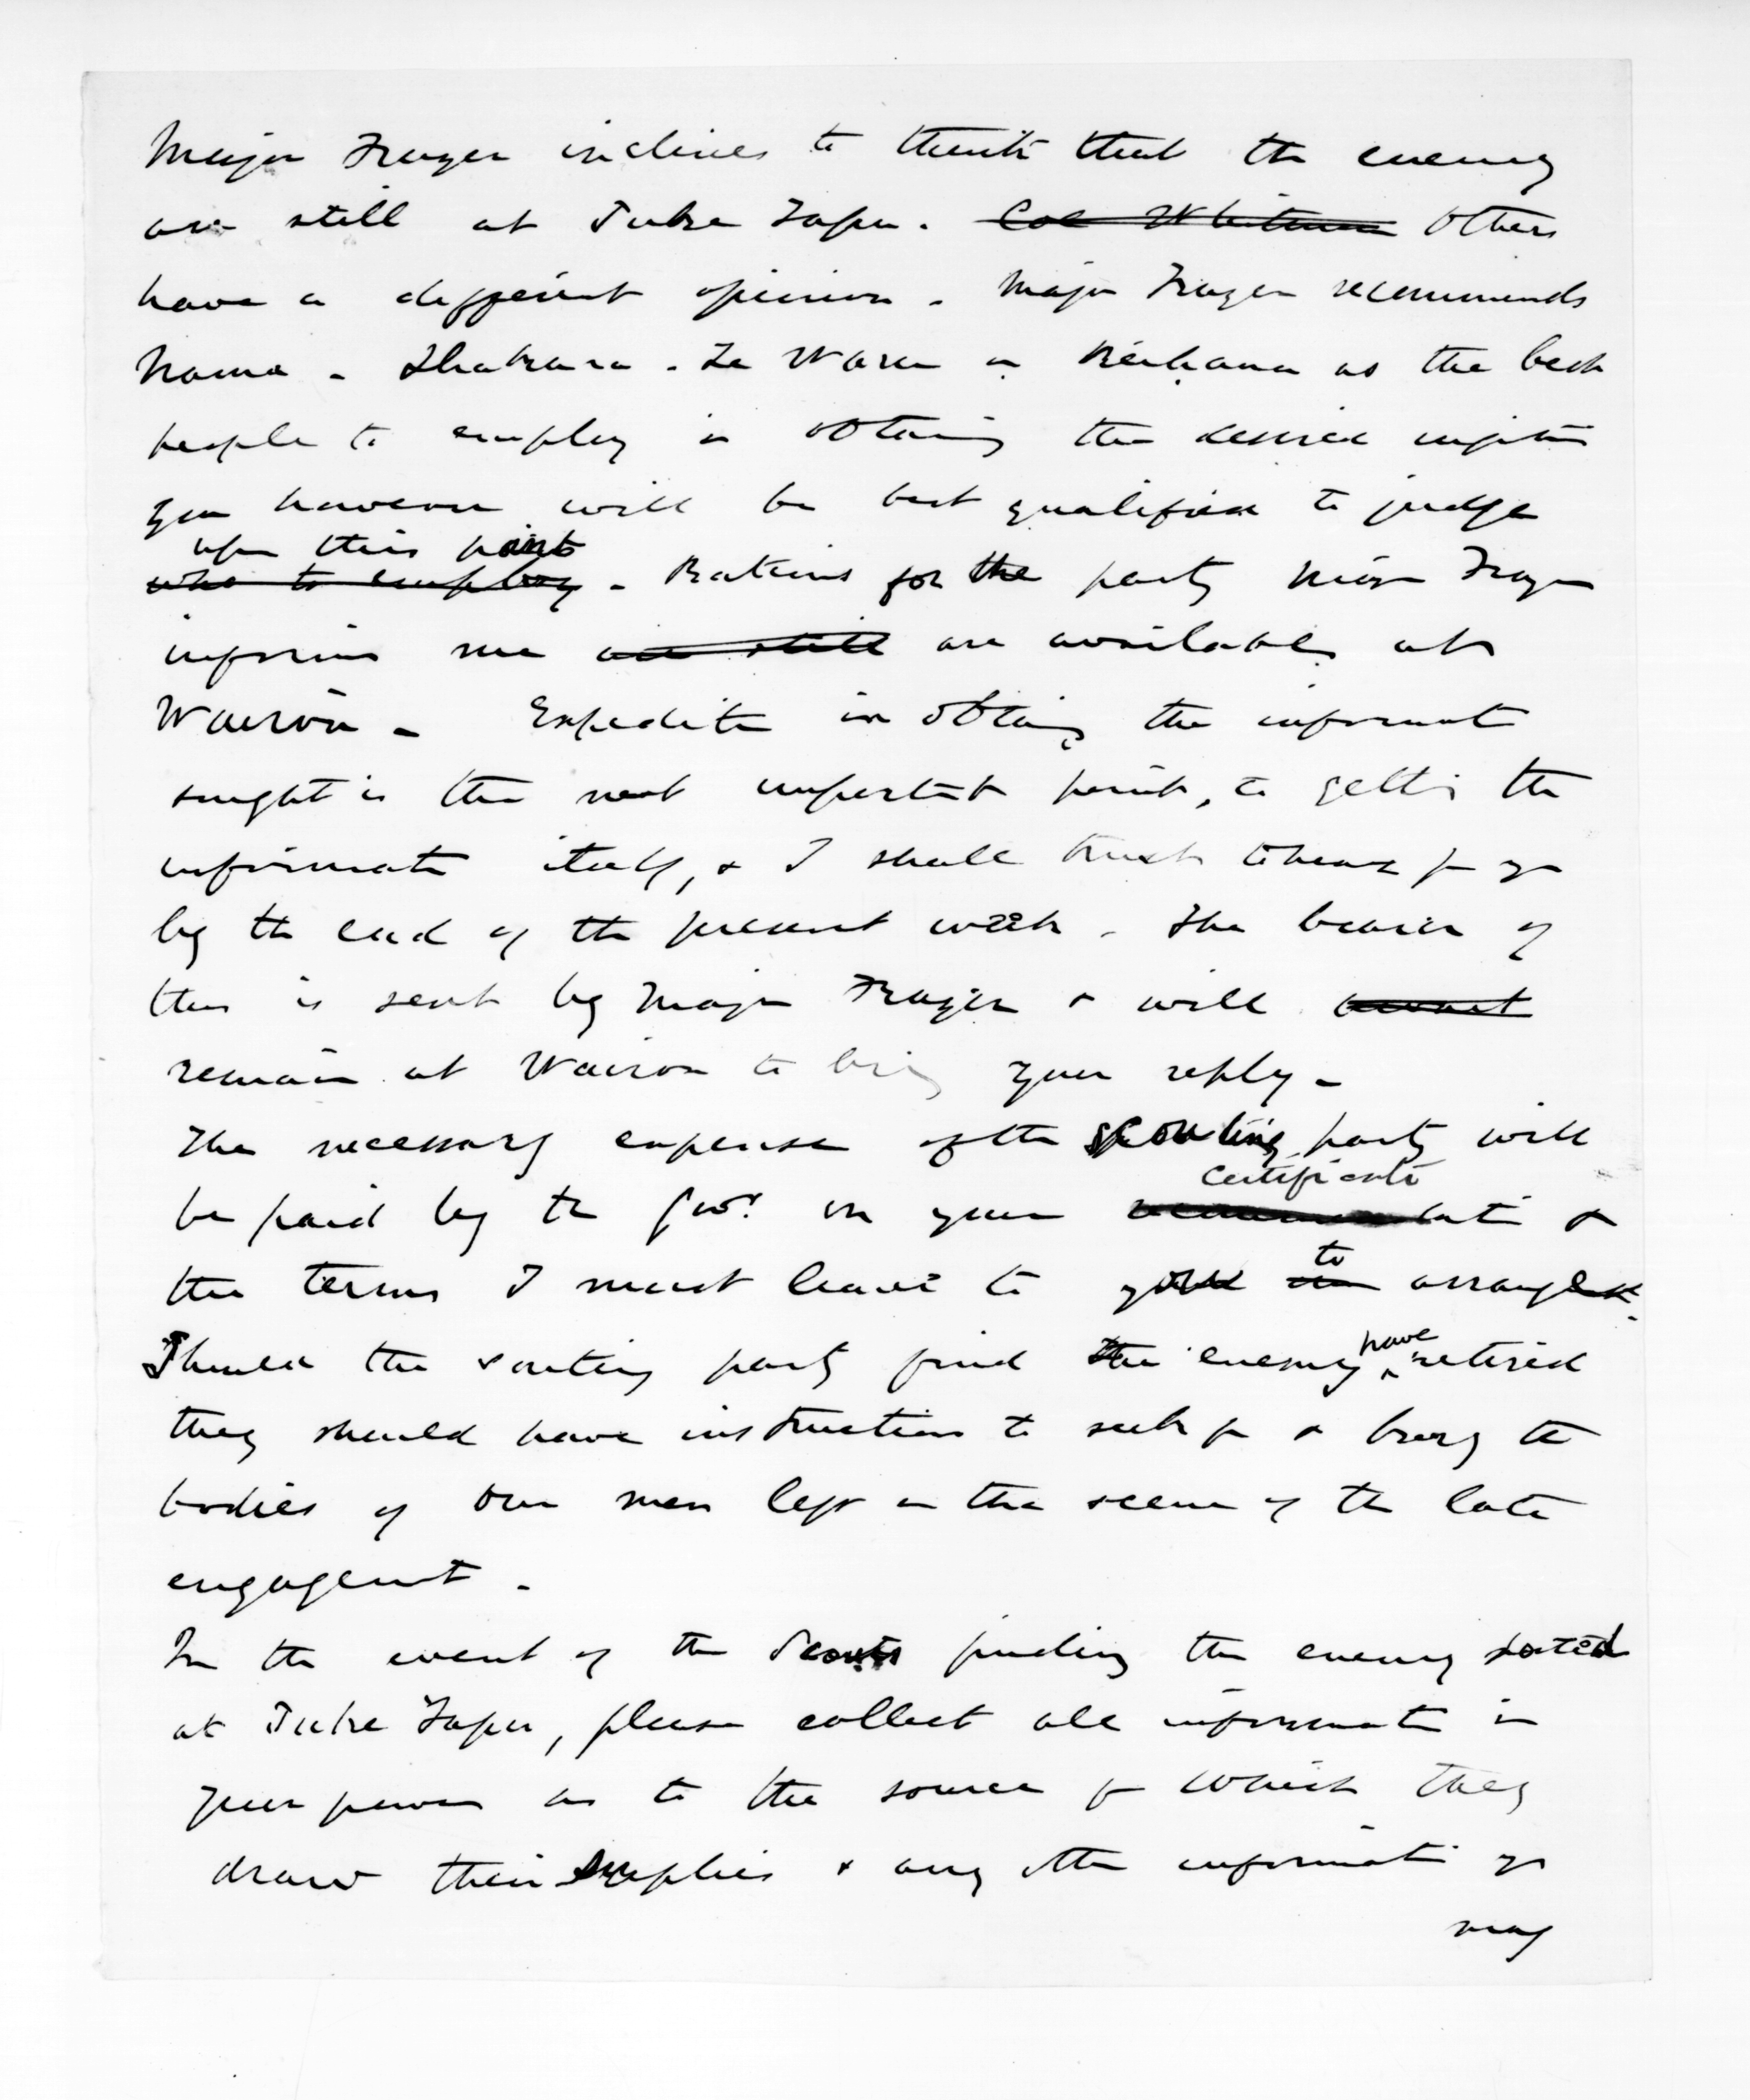 Major Frazer inclines to think that the enemy
are still at Puke Tapu. Col Whitmore Others
have a different opinion. Major Frazer recommends
Te Waru or as the best
people to employ in obtaing the desired
you however will be best qualified to judge
upon this point
who to employ - Rations for the party Major Frazer
informs me are still are available at
Wairoa - Expedite in obtaing the informat
sought is the next importat point, to gettig the
informate itself, & I shall trust to hear fr yo
by the end of the present week. The bearer of
this is sent by Major Frazer & will await
remain at Wairoa to bring your reply -
The necessary expense of the scouting party will
certificate
be paid by the Govt on your &
to
the terms I must leave to you arrange
have
Should the scouting party find the enemy retired
they should have instructions to seek for & bury the
bodies of our men left on the scene of the late
engagement.
In the event of the Scouts finding the enemy
at Puke Tapu, please collect all informate in
your power as to the source fr which they
draw their supplies & any other informati yo
may